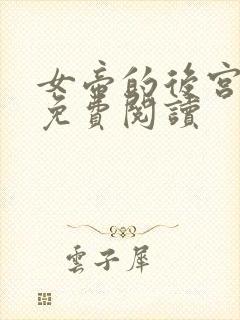 女帝的後宮
免費閱讀
雲子犀